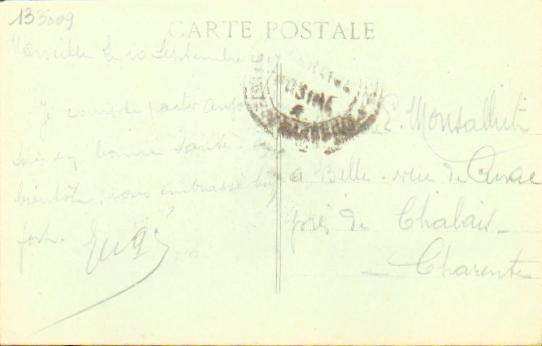 133009
CARTE POSTALE
Marseille le 10 Septembre
Je compte partir
suis en bonne santé
bientôt, vous embrasse
fort.
E. Monsallut
à Belle-vue de Curac
près de Chalais
Charente